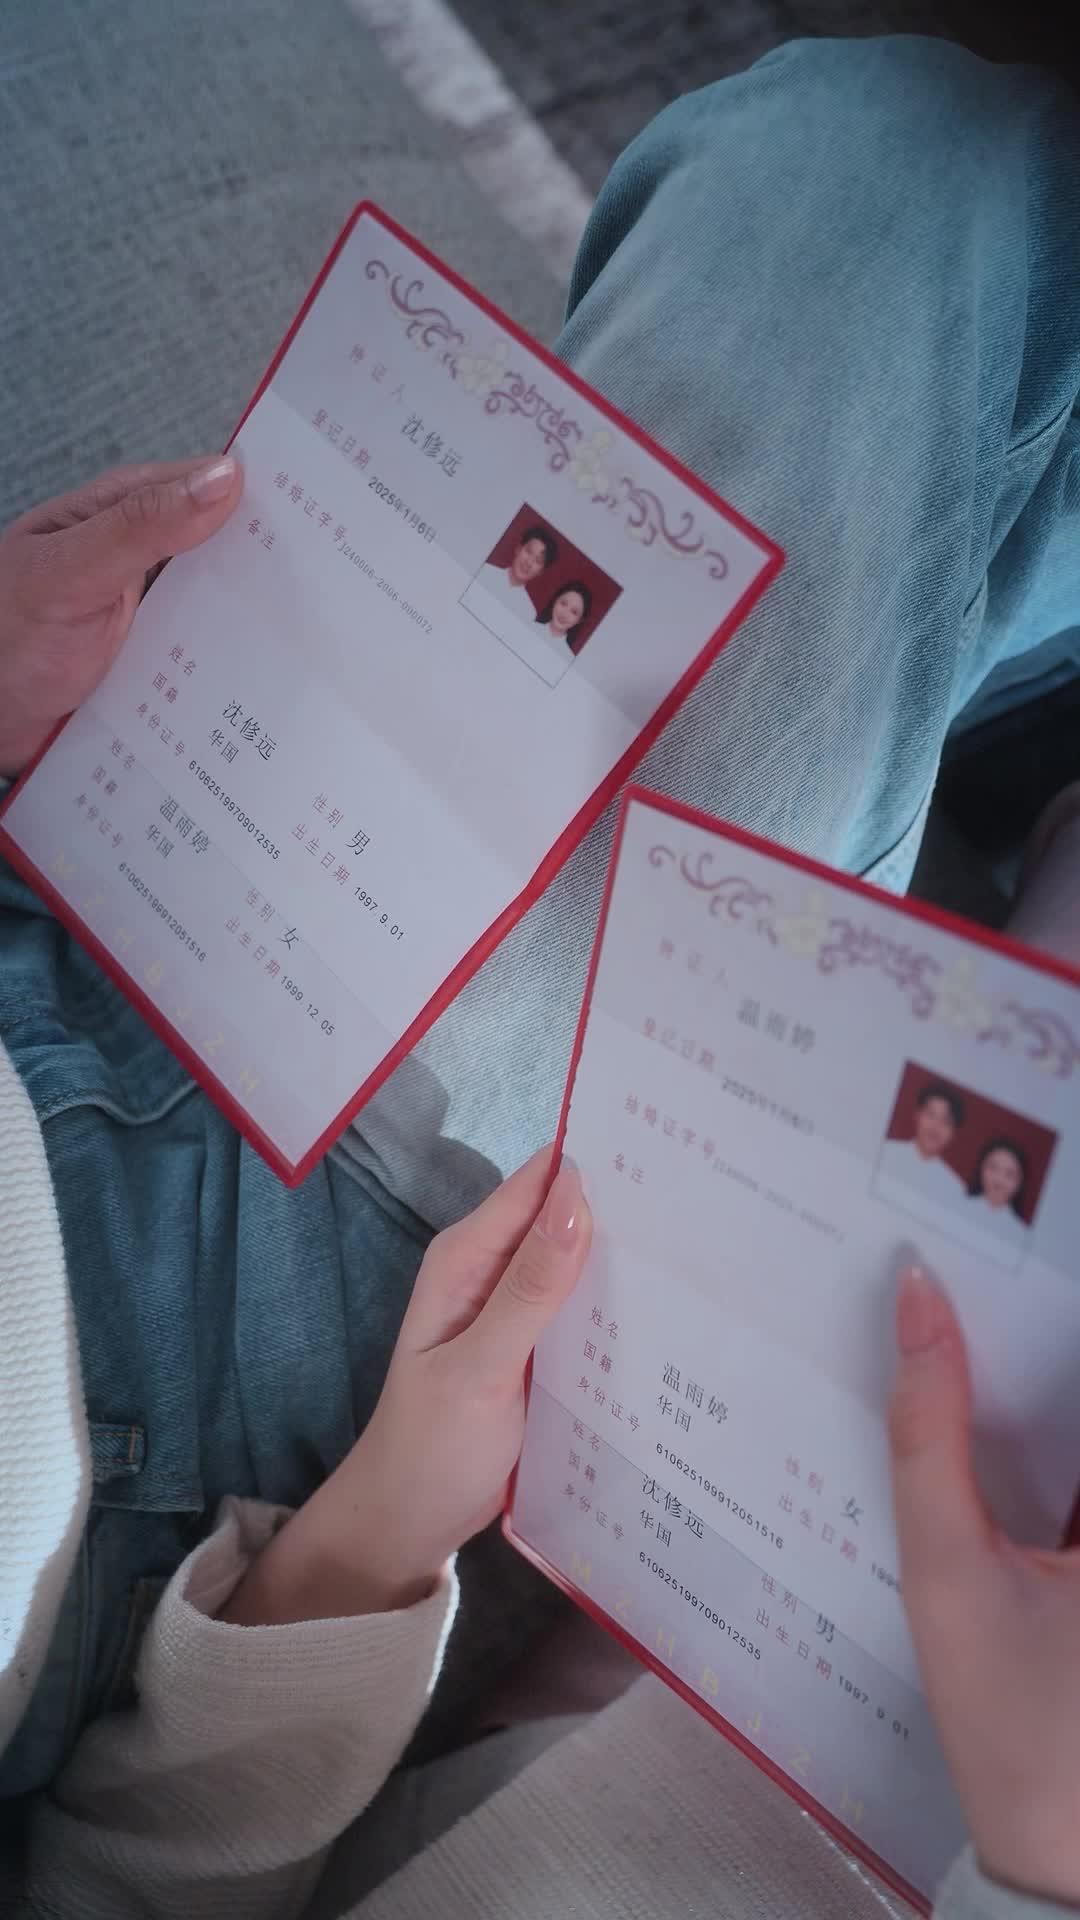 持证人 沈修远
登记日期 2025年1月6日
结婚证字号 J240006-2006-000072
备注
姓名 沈修远 性别 男
国籍 华国 出生日期 1997.9.01
身份证号 610625199709012535
姓名 温雨婷 性别 女
国籍 华国 出生日期 1999.12.05
身份证号 610625199912051516
M Z H B J Z H
持证人 温雨婷
登记日期 2025年1月6日
结婚证字号
备注
姓名 温雨婷 性别 女
国籍 华国 出生日期
身份证号 610625199912051516
姓名 沈修远 性别 男
国籍 华国 出生日期 1997.9.01
身份证号 610625199709012535
M Z H B J Z H